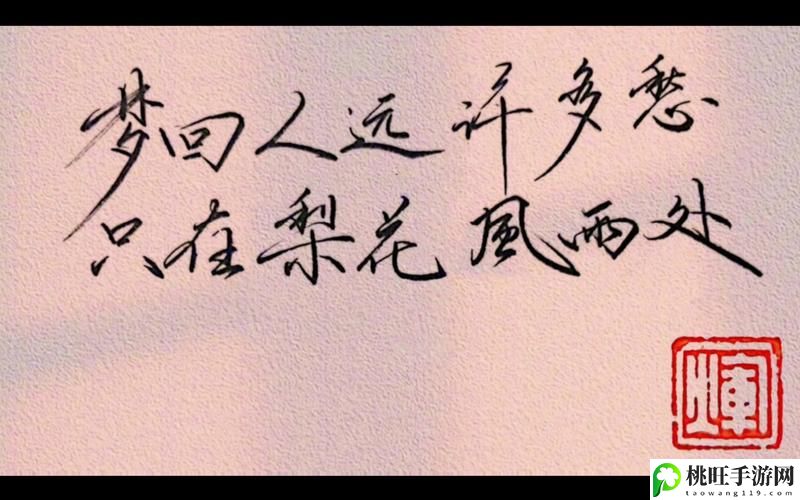 梦回人远许多愁
只在梨花風雨处
煇
桃旺手游网
taowang119.com